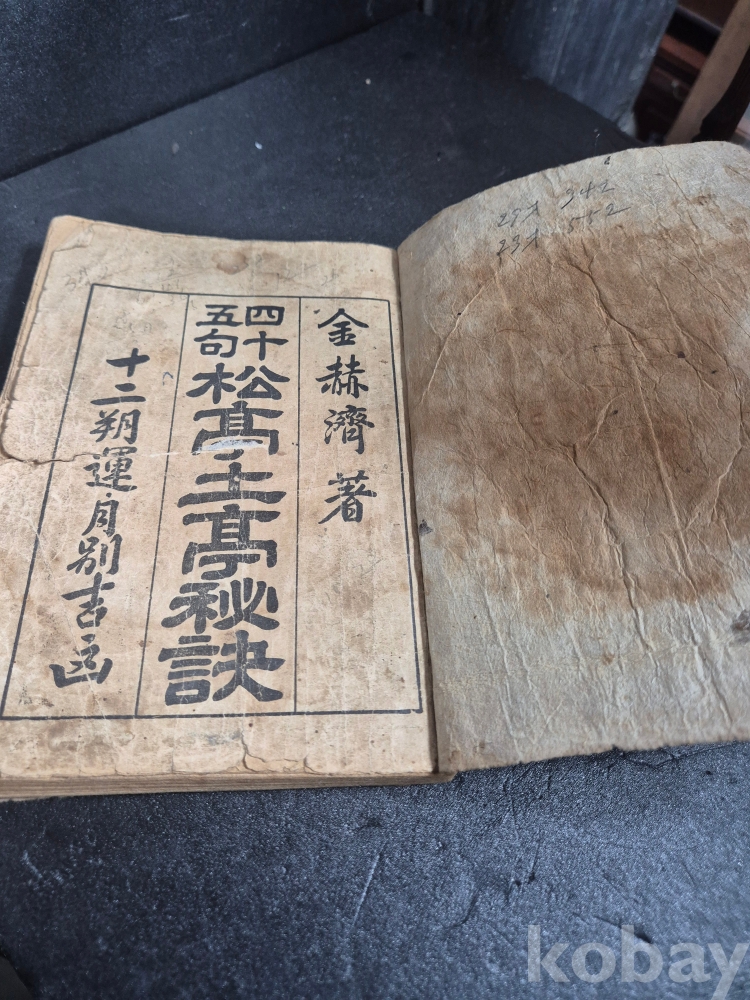 金赫濟 著
四十五句 松亭土亭秘訣
十二朔運 月別吉凶
29才 342
23才 552
kobay